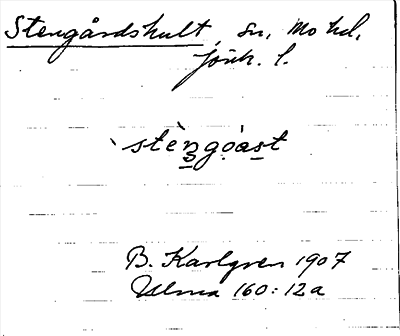 Stengårdshult, sn, Mo hd,
Jönk. l.
`stèŋgo̩ast
B. Karlgren 1907
Ulma 160:12a